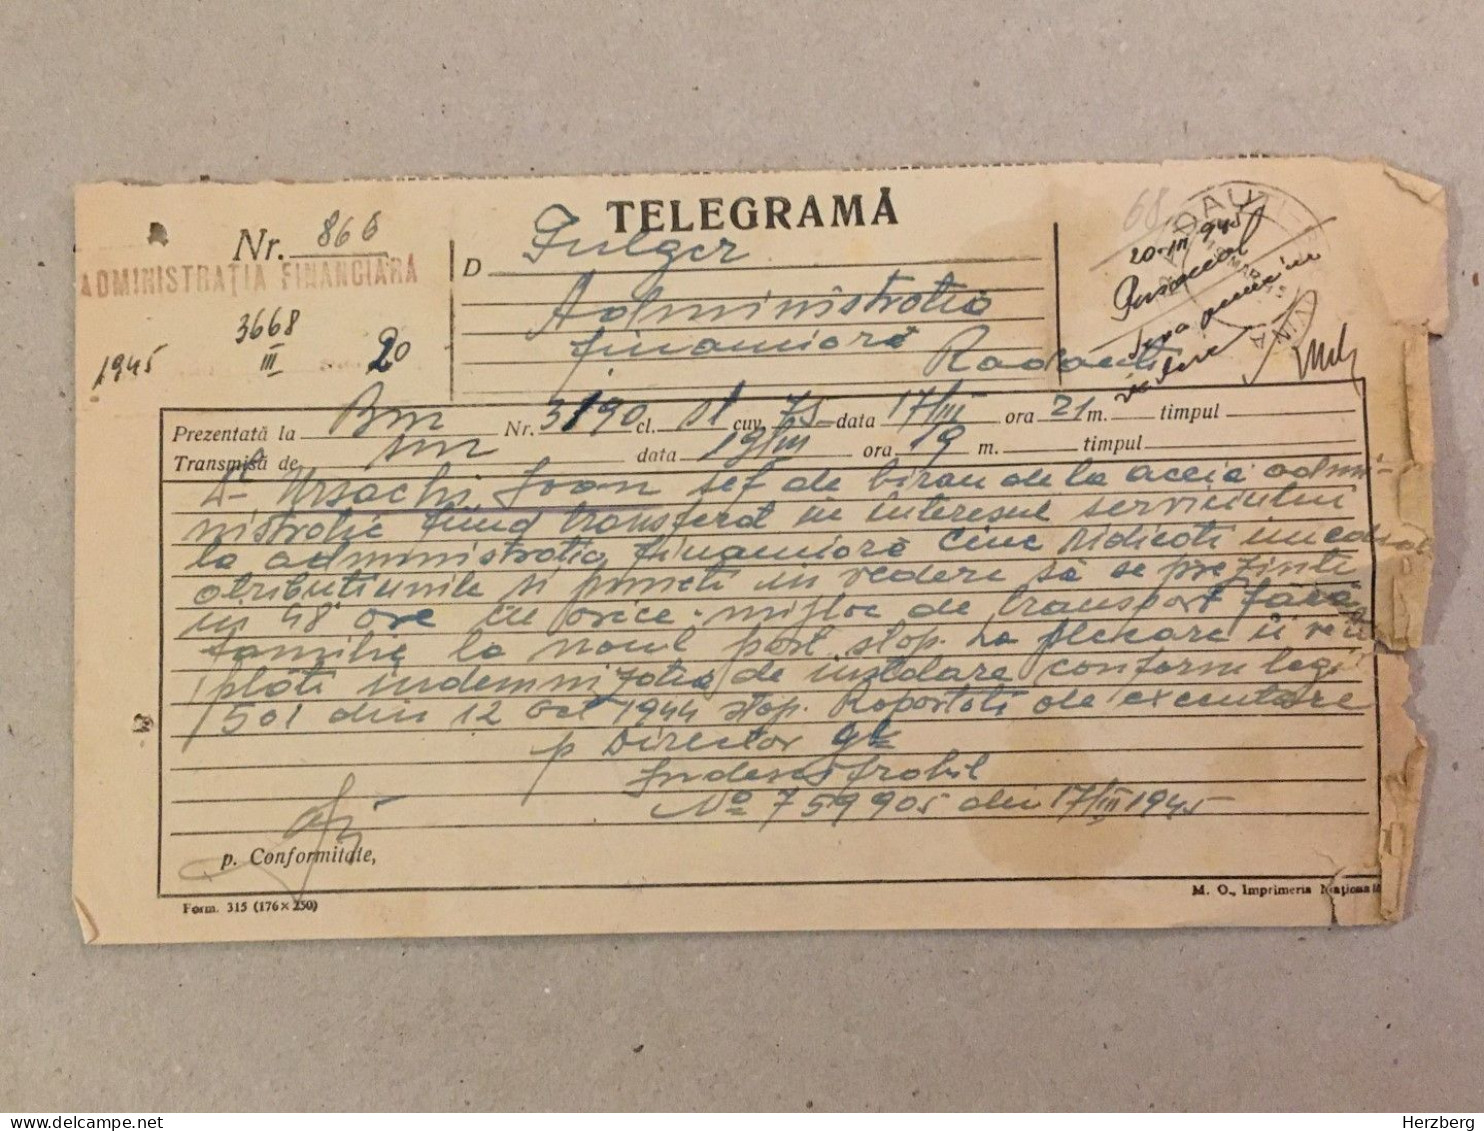 TELEGRAMĂ
Nr. 866
ADMINISTRAȚIA FINANCIARA
3668
1945 III 20
D Fulger
Administratia
financiară
Radauti
68
RADAUTI
19 MAR. 45
20-III 945
Personal
Prezentată la Buc Nr. 3190 cl. st cuv. 75 data 17/III ora 21 m. timpul
Transmisă de data 19/III ora 19 m. timpul
Dl Ursachi Ioan sef de birou de la aceia admi-
nistratie fiind transferat in interesul serviciului
la administratia financiară Ciuc ridicati
atributiunile si puneti in vedere să se prezinte
in 48 ore cu orice mijloc de transport fără
familie la noul post stop. La plecare ii veti
plăti indemnizatia de instalare conform legii
501 din 12 Oct 1944 stop. Raportati de executare
p Director gl
No 759905 din 17/III 1945
p. Conformitate,
Form. 315 (176×250)
M. O., Imprimeria Națională
Herzberg